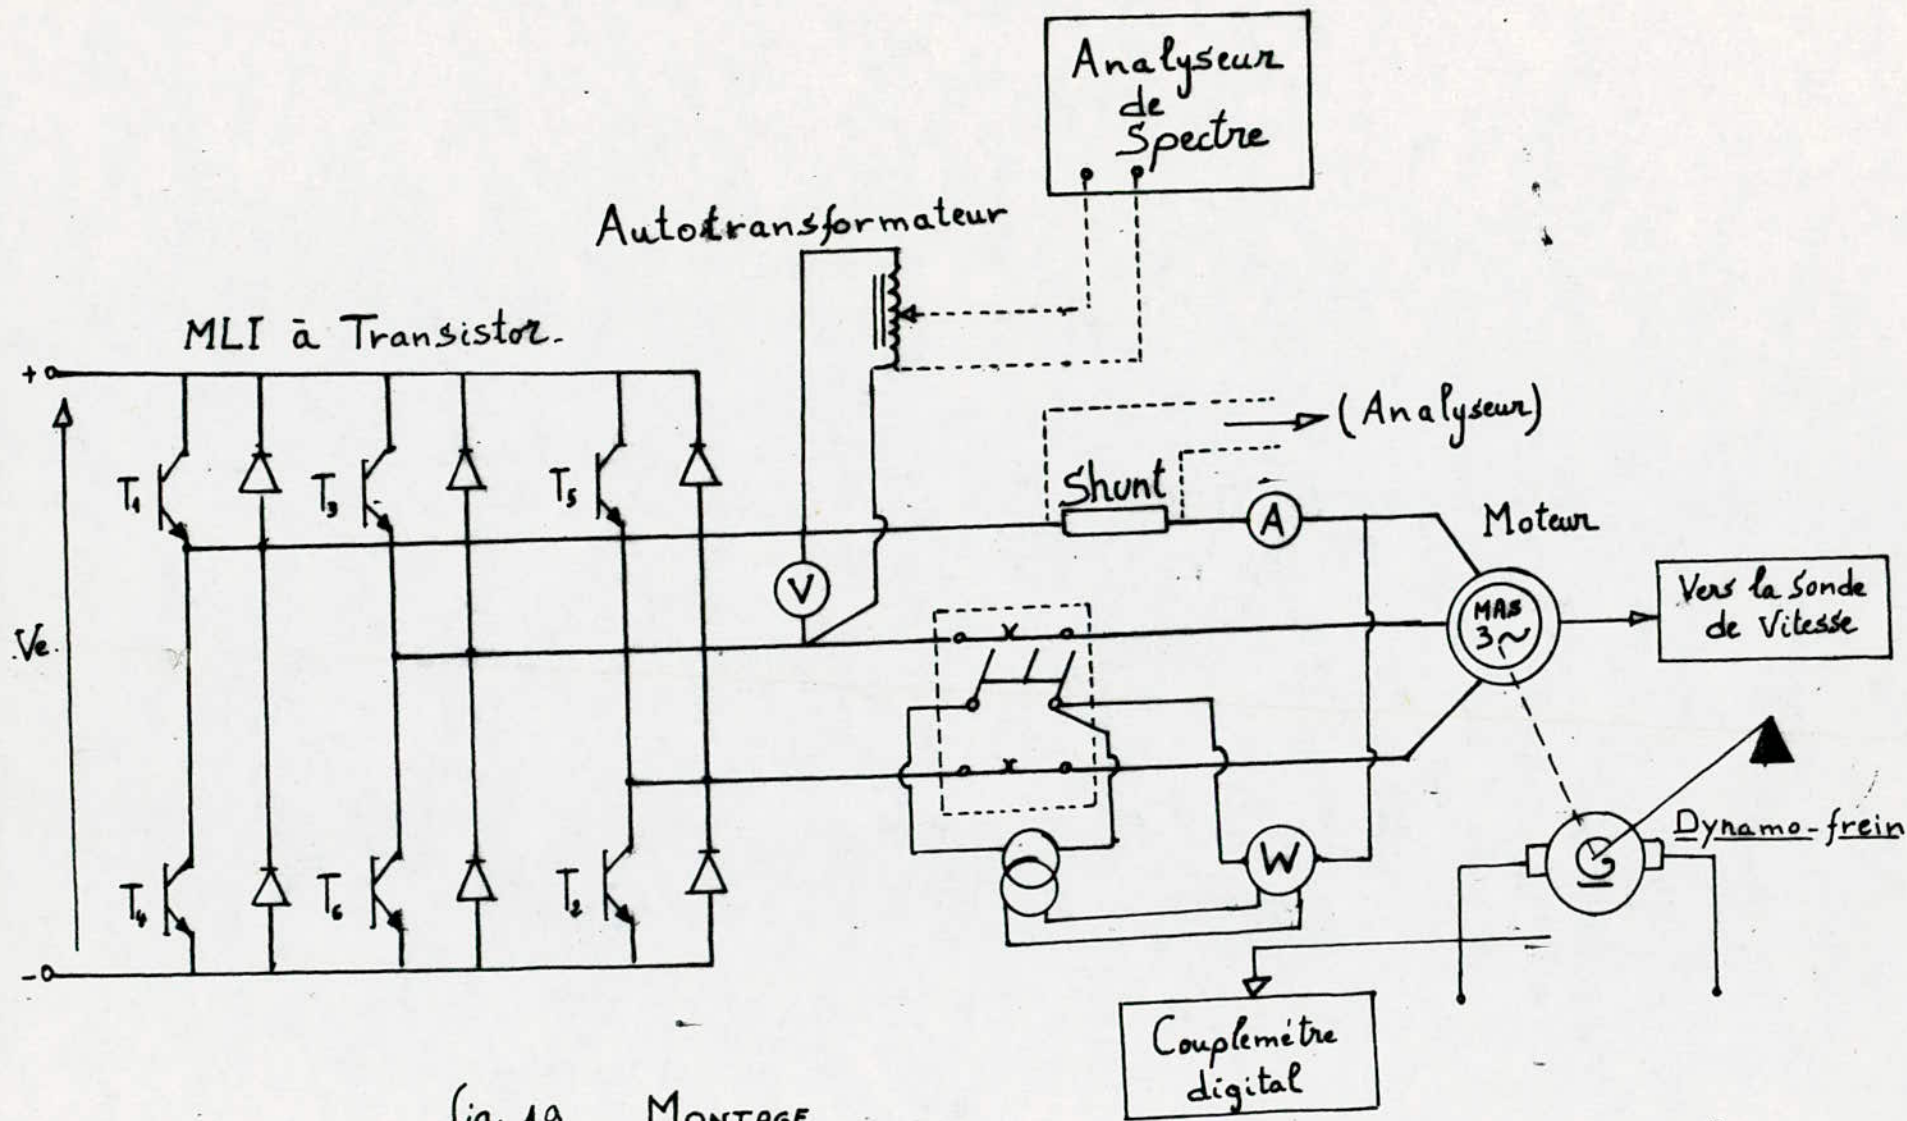 Analyseur
de
Spectre
Autotransformateur
MLI à Transistor.
+
(Analyseur)
Shunt
T1
T3
T5
A
Moteur
V
MAS
3~
Vers la Sonde
de Vitesse
Ve.
x
x
Dynamo-frein
W
G
T4
T6
T2
-
Couplemétre
digital
fig. 19 MONTAGE